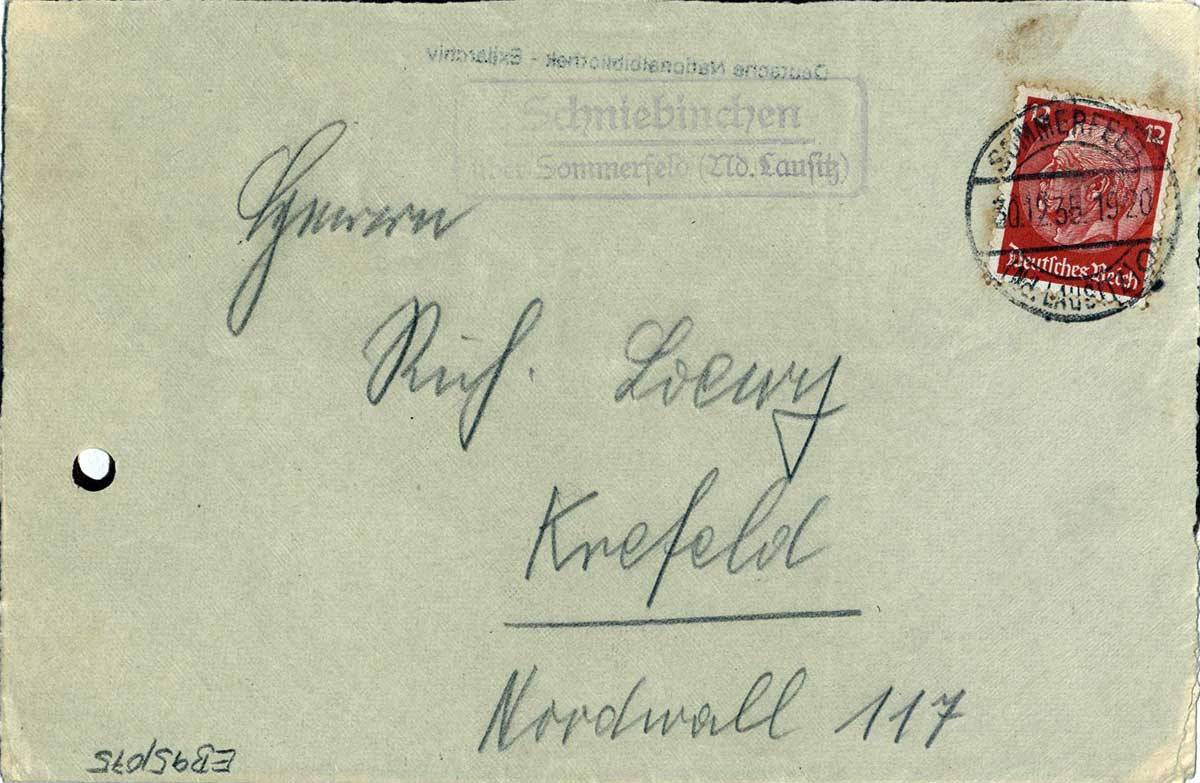 Deutsche Nationalbibliothek - Exilarchiv
Schniebinchen
über Sommerfeld (Nd. Lausitz)
12 12
Deutsches Reich
SOMMERFELD
30.12.35 19-20
(Nd. LAUSITZ)
Herrn
Rich. Loewy
Krefeld
Nordwall 117
EB95/075